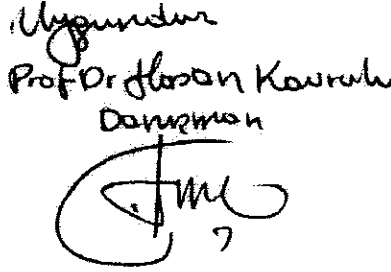 Uygundur
Prof Dr Hasan Kavruk
Danışman